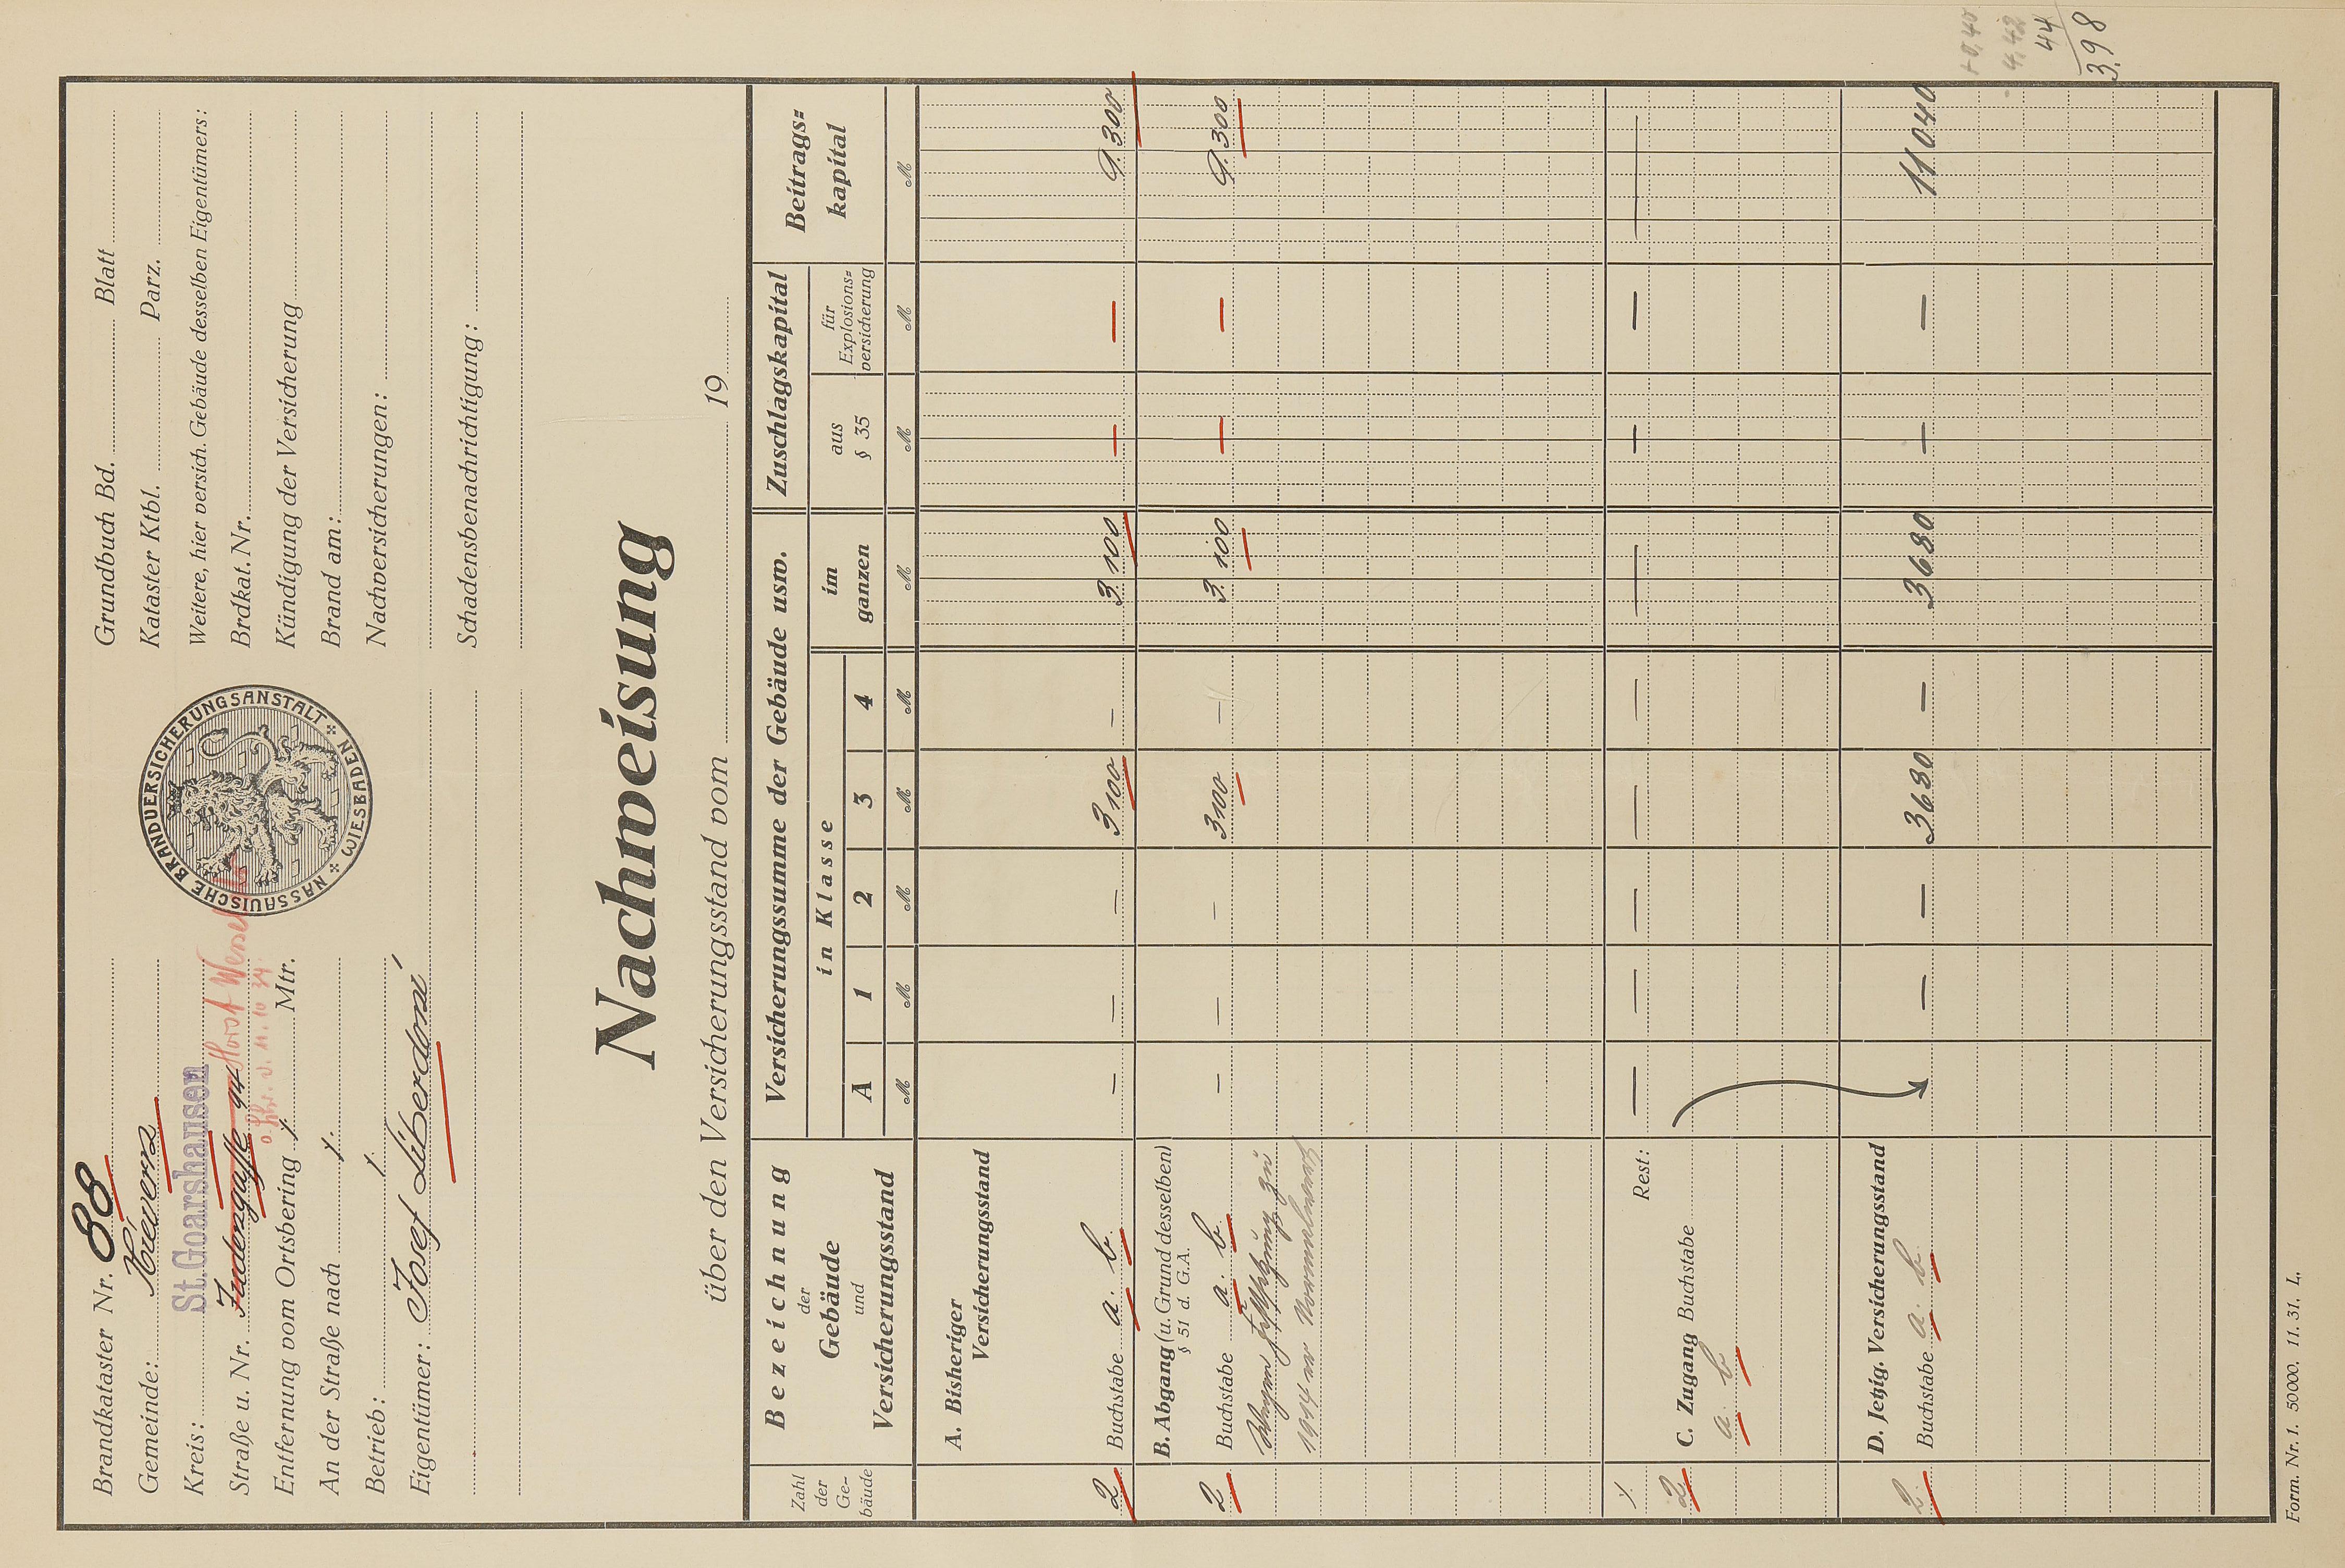 Brandkataster Nr. 88
Gemeinde:
Kreis: St. Goarshausen
Straße u. Nr. Judengasse 94 Horst Wessel
Entfernung vom Ortsbering ⁒ Mtr.
v. 11. 10 34.
An der Straße nach ⁒
Betrieb: ⁒
Eigentümer: Josef Liberdoni
NASSAUISCHE BRANDVERSICHERUNGSANSTALT
WIESBADEN
Grundbuch Bd. Blatt
Kataster Ktbl. Parz.
Weitere, hier versich. Gebäude desselben Eigentümers:
Brdkat. Nr.
Kündigung der Versicherung
Brand am:
Nachversicherungen:
Schadensbenachrichtigung:
Nachweisung
über den Versicherungsstand vom 19
Zahl der Ge-bäude
Bezeichnung
der
Gebäude
und
Versicherungsstand
Versicherungssumme der Gebäude usw.
in Klasse
A 1 2 3 4
im ganzen
Zuschlagskapital
aus § 35
für Explosions=versicherung
Beitrags=kapital
M M M M M M M M M
A. Bisheriger
Versicherungsstand
2 Buchstabe a. b. — — — 3 100 — 3. 100 — — 9. 300
B. Abgang (u. Grund desselben)
§ 51 d. G.A.
2 Buchstabe a. b. — — — 3100 — 3. 100 — — 9. 300
Wegen zu
1914er
⁒ Rest: — — — — — — — — —
2 C. Zugang Buchstabe
a. b
D. Jetzig. Versicherungsstand
2. Buchstabe a. b. — — — 3680 — 3680 — — 11040
44
3.98
Form. Nr. 1. 50000. 11. 31. L.